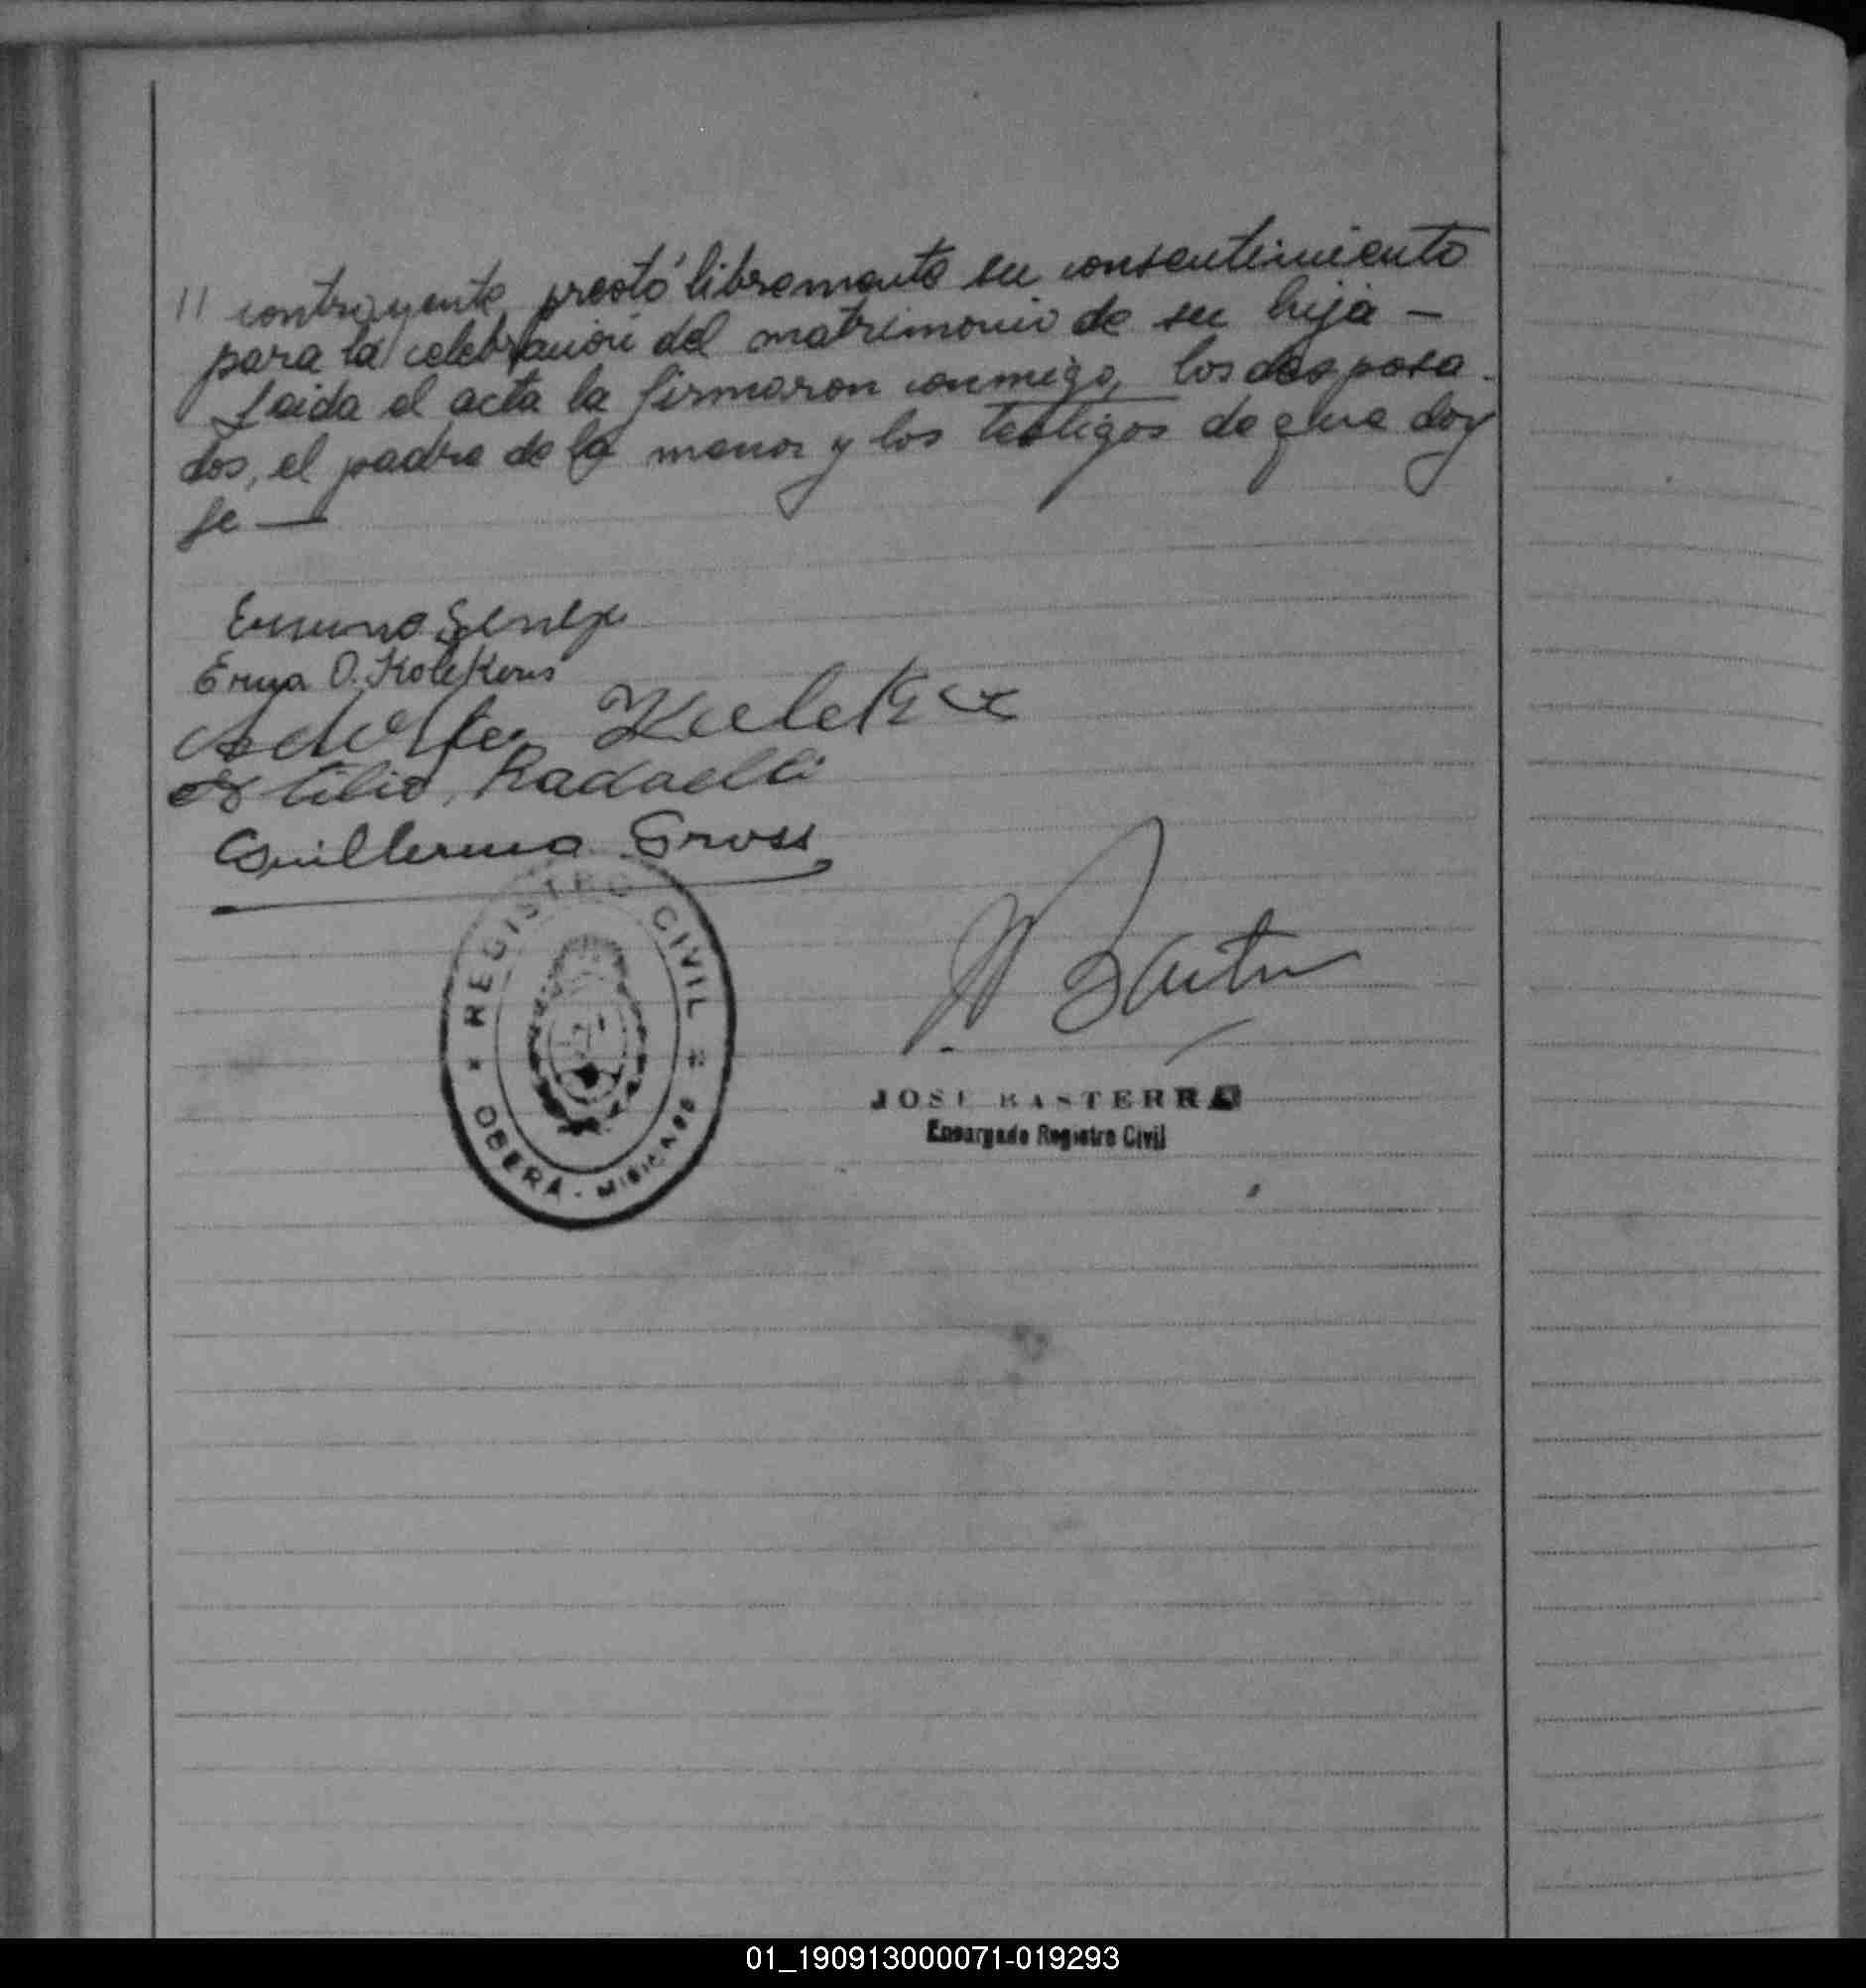 // contrayente, prestó libremente su consentimiento
para la celebración del matrimonio de su hija —
Leida el acta la firmaron conmigo, los desposa-
dos, el padre de la menor y los testigos de que doy
fe —
Erma O. Kolekers
Adolfo
Atilio Radaelli
Guillermo Gross
REGISTRO CIVIL
OBERÁ - MISIONES
JOSE BASTERRA
Encargado Registro Civil
01_190913000071-019293